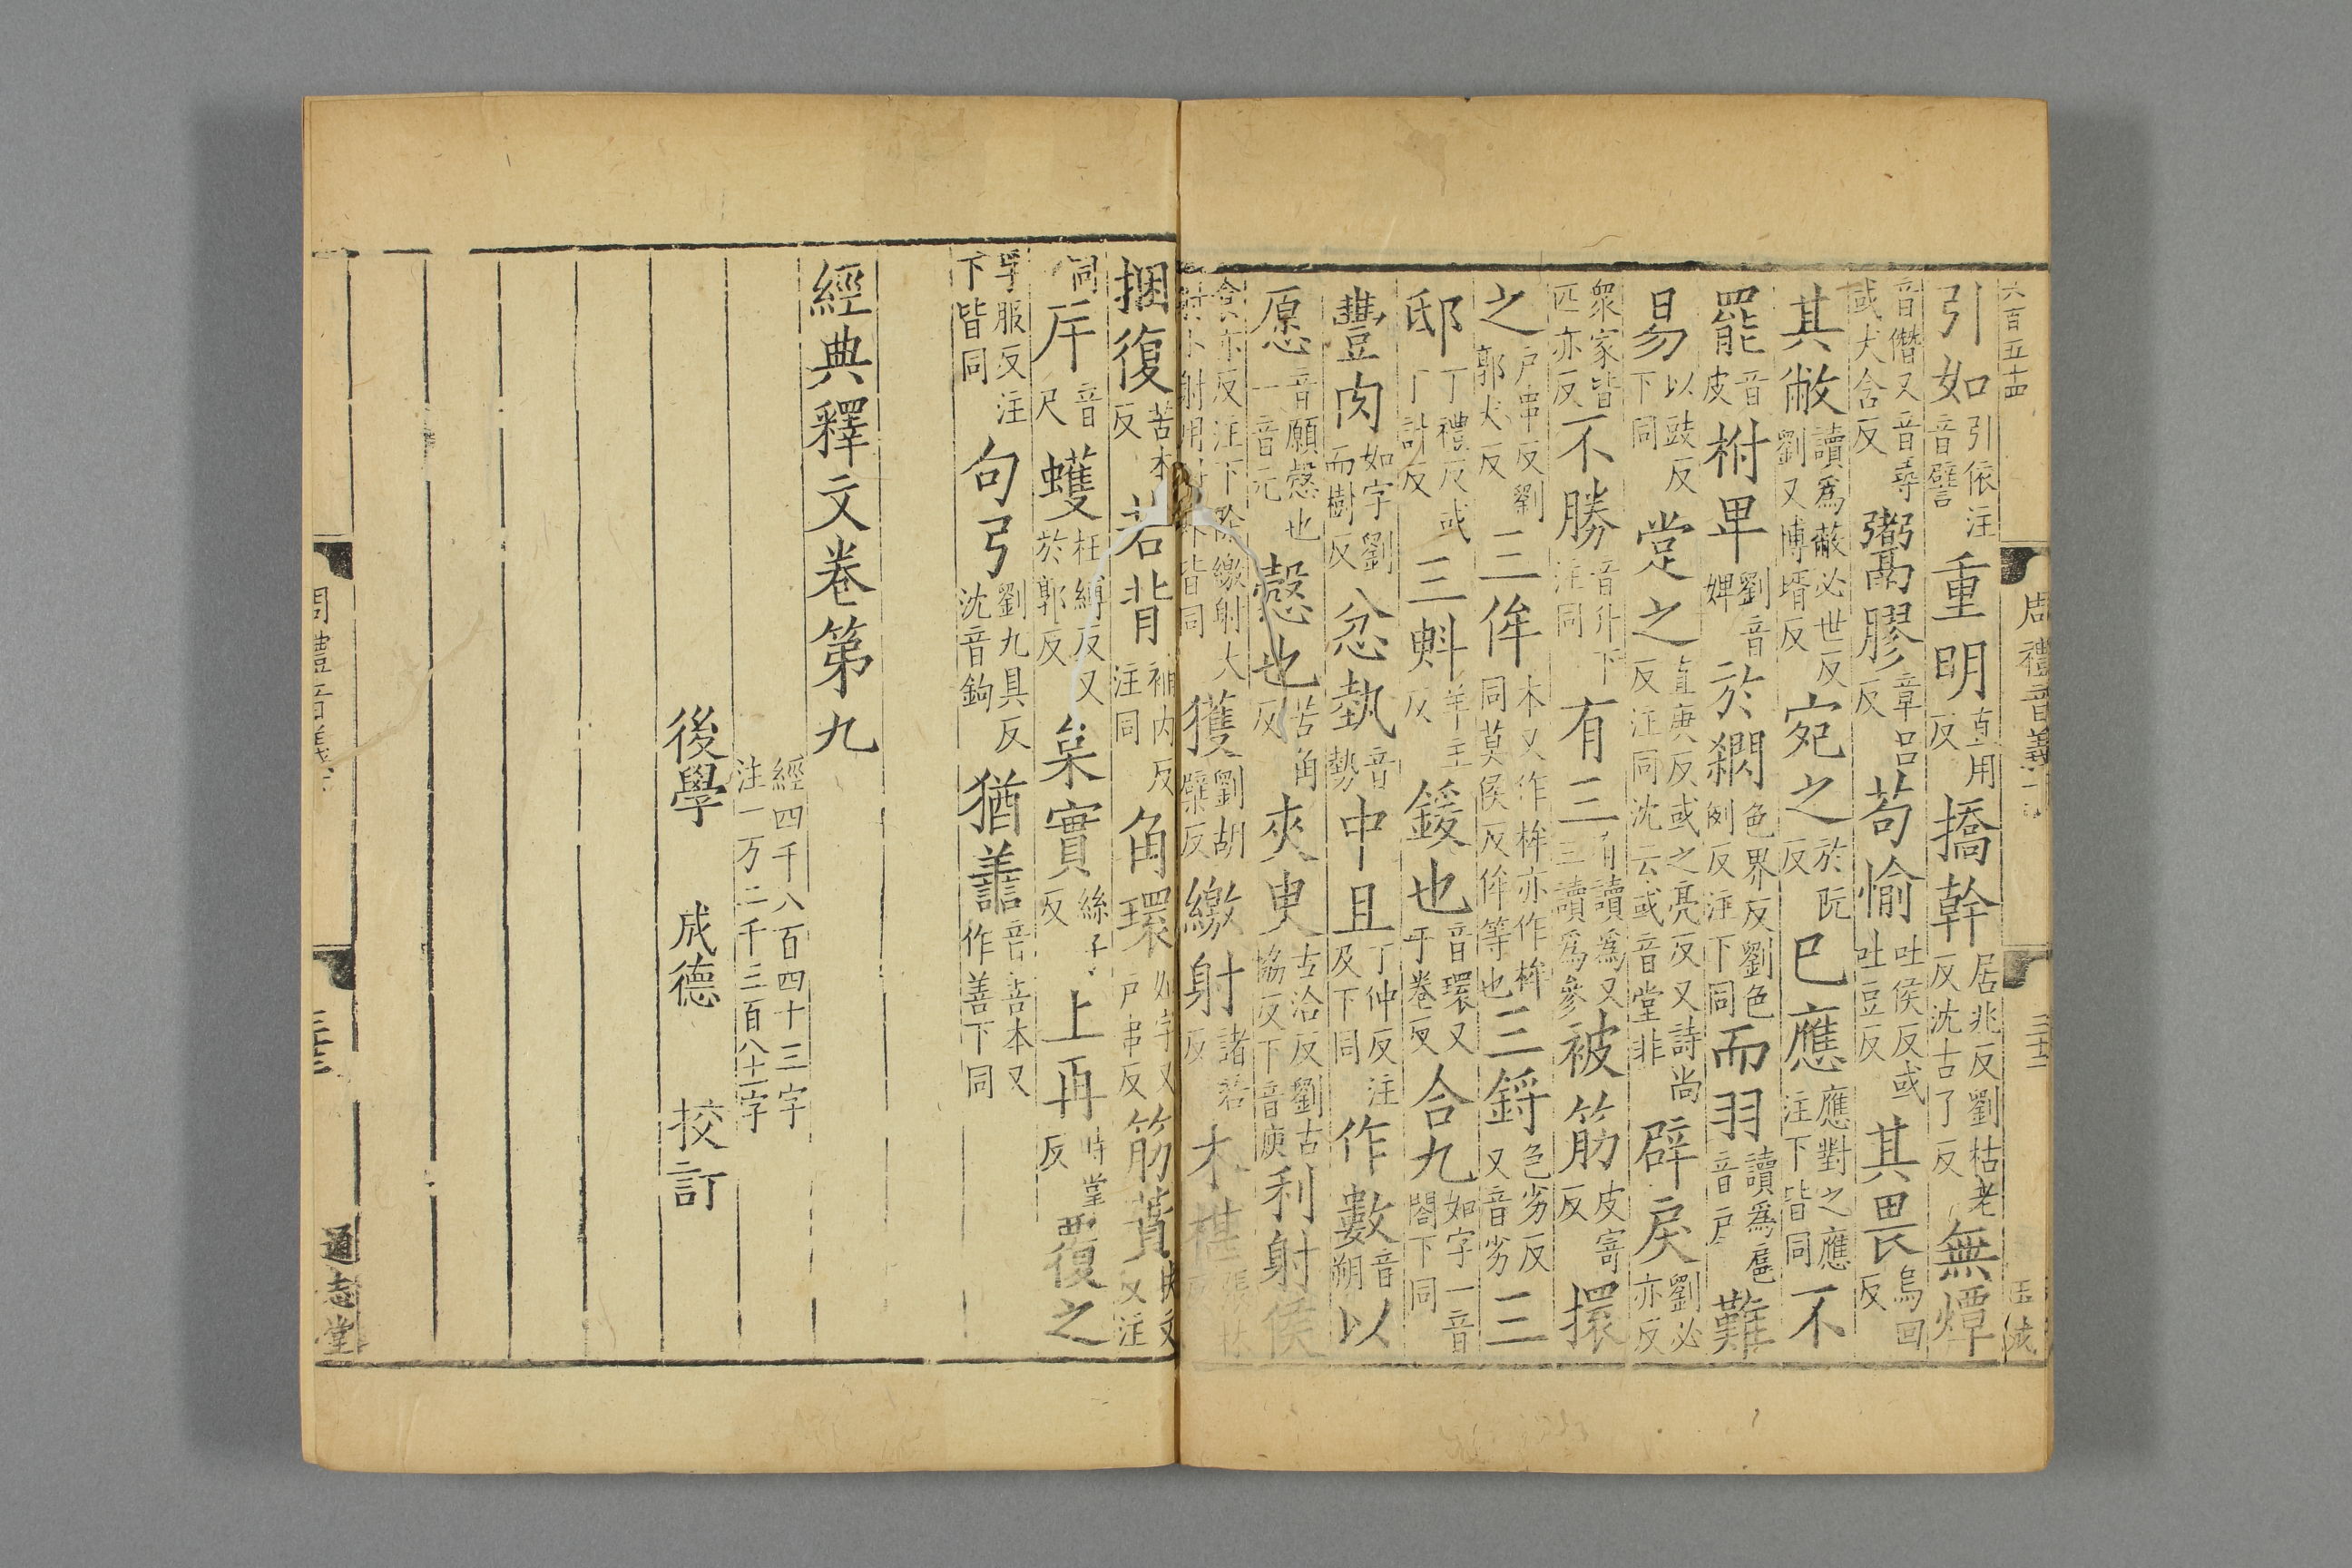 六百五十四
周禮音義下
三十二
引如引依注音譬重明直用反撟幹居兆反劉枯老反沈古了反無燂
音僭又音尋或大含反鬻膠章呂反苟愉吐侯反或吐豆反其畏烏回反
其敝讀爲蔽必世反劉又博壻反宛之於阮反已應應對之應注下皆同不
罷音皮柎畢劉音婢於綱色界反劉色例反注下同而羽讀爲扈音戸難
易以豉反下同定之直庚反或之亮反又詩尚反注同沈云或音堂非辟戾劉必亦反
衆家皆匹亦反不勝音升下注同有三有讀爲又三讀爲參被筋皮寄反擐
之戸串反劉郭犬反三侔本又作桙亦作桙同莫侯反侔等也三鋝色劣反又音劣三
邸丁禮反或丁計反三㪺羊主反鍰也音環又于卷反合九如字一音閤下同
豐肉如字劉而樹反忿埶音勢中且丁仲反注及下同作數音朔以
愿音願慤也一音元慤也苦角反夾㬰古洽反劉古協反下音庾利射侯
食亦反注下除繳射大獲劉胡檗反繳射諸若反木椹
捆復苦本反若背補内反注同角環如字又戸串反筋蕡扶文反注
同斥音尺蠖枉縛反又於郭反枲實絲子反上再時掌反覆之
孚服反注下皆同句弓劉九具反沈音鉤猶譱音善本又作善下同
經典釋文卷第九
經四千八百四十三字
注一万二千三百八十一字
後學 成德 挍訂
周禮音義下
三十三
通志堂